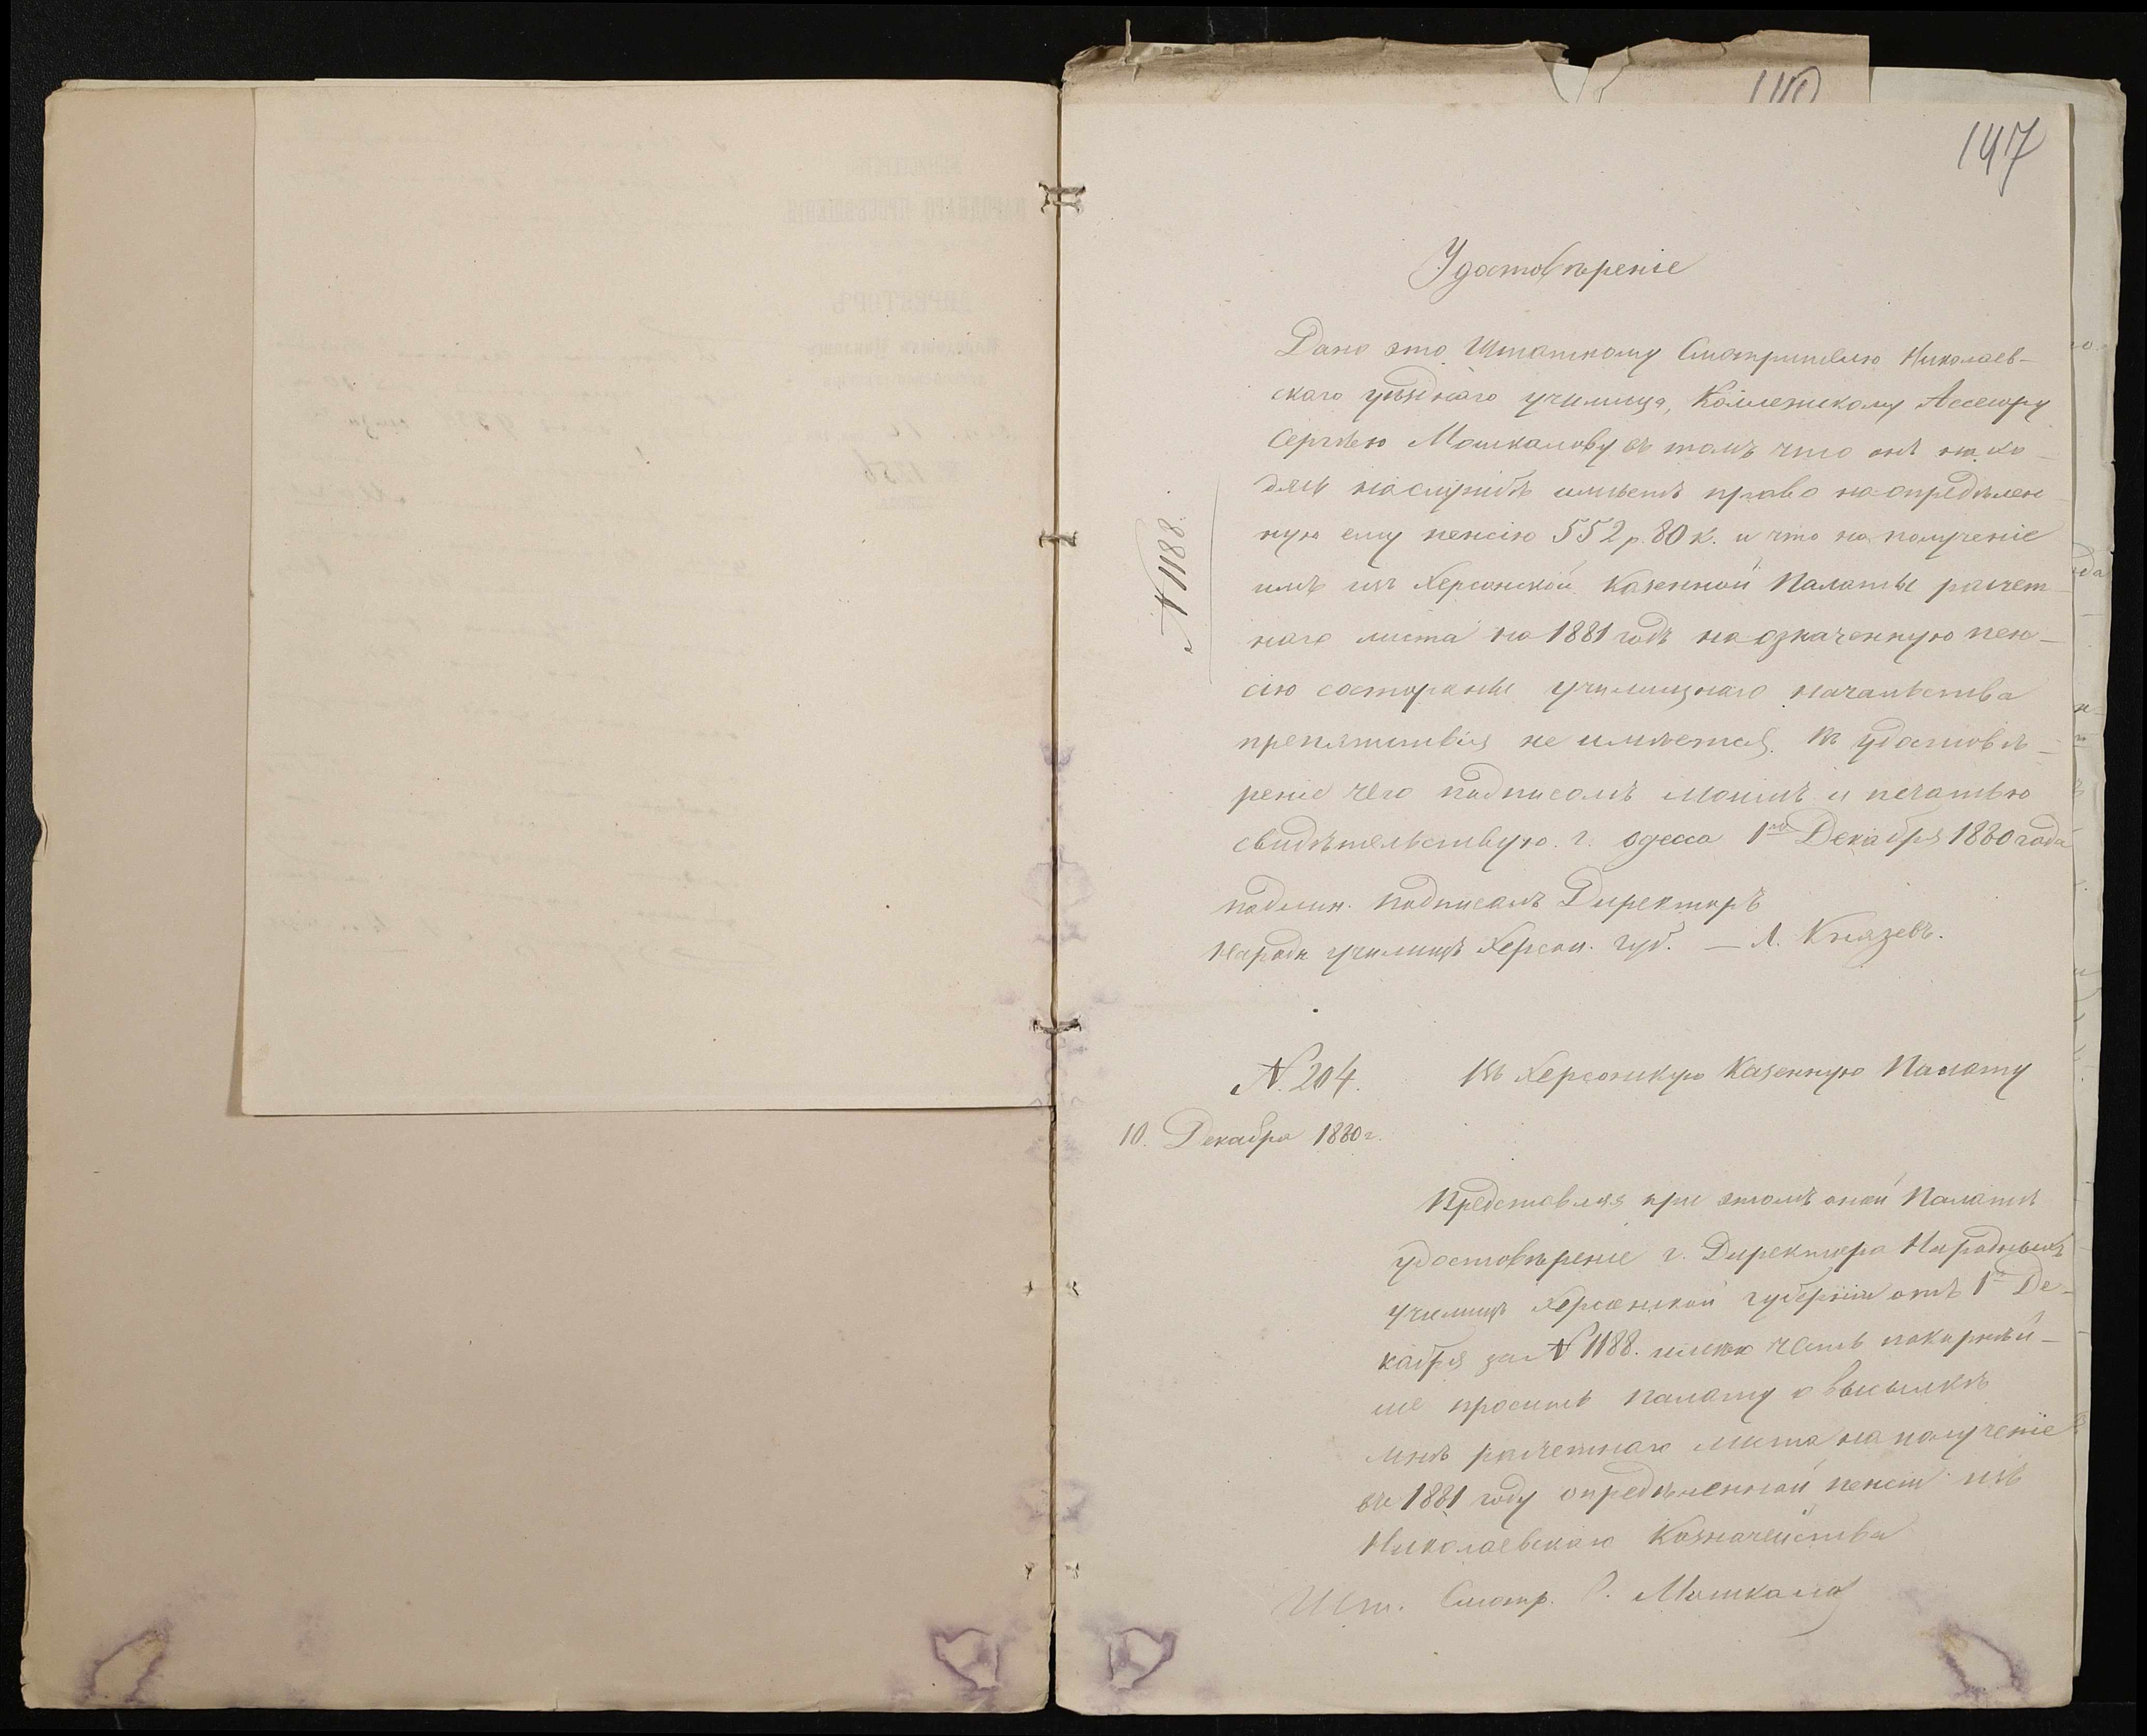 147
Удостовѣреніе
Дано это Штатному Смотрителю Николаев-
скаго уѣзднаго училища, Коллежскому Ассесору
Сергѣю Мошкалову въ томъ что онъ нахо-
дясь на службѣ имѣетъ право на опредѣлен-
ную ему пенсію 552 р. 80 к. и что на полученіе
имъ изъ Херсонской Казенной Палаты расчет-
наго листа на 1881 годъ на означенную пен-
сію со стороны училищнаго начальства
препятствія не имѣется. Въ удостовѣ-
реніе чего подписомъ моимъ и печатью
свидѣтельствую. г. Одесса 1го Декабря 1880 года
подлин. подписалъ Директоръ
Народн училищъ Херсон. губ. — А. Князевъ.
N 1188.
N. 204.
Въ Херсонскую Казенную Палату
10. Декабра 1880 г.
Представляя при этомъ оной Палатѣ
удостовѣреніе г. Директора Народныхъ
училищъ Херсонской губерніи отъ 1го Де-
кабря за N 1188. имѣю честь покорнѣй-
ше просить палату о высылкѣ
мнѣ расчетнаго листа на полученіе
въ 1881 году опредѣленной пенсіи изъ
Николаевскаго Казначейства
Шт. Смотр. С. Мошкалов